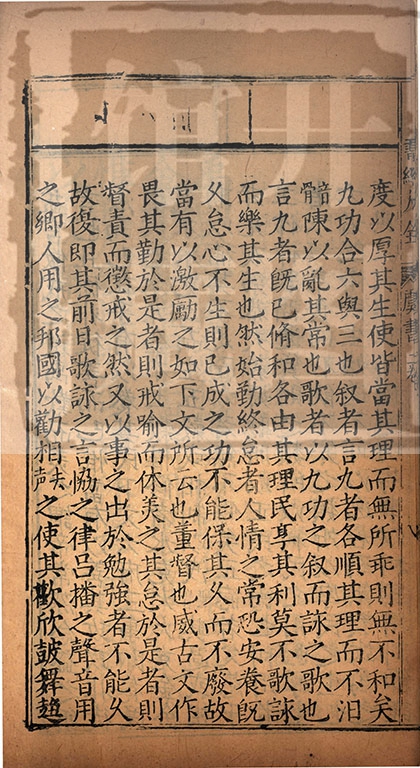 度以厚其生使皆當其理而無所乖則無不和矣
九功合六與三也叙者言九者各順其理而不汨
䯝陳以亂其常也歌者以九功之叙而詠之歌也
言九者旣已脩和各由其理民享其利莫不歌詠
而樂其生也然始勤終怠者人情之常恐安養旣
久怠心不生則已成之功不能保其久而不廢故
當有以激勵之如下文所云也董督也威古文作
畏其勤於是者則戒喻而休美之其怠於是者則
督責而懲戒之然又以事之出於勉強者不能久
故復即其前日歌詠之言恊之律呂播之聲音用
之鄉人用之邦國以勸相去聲之使其歡欣鼓舞趨